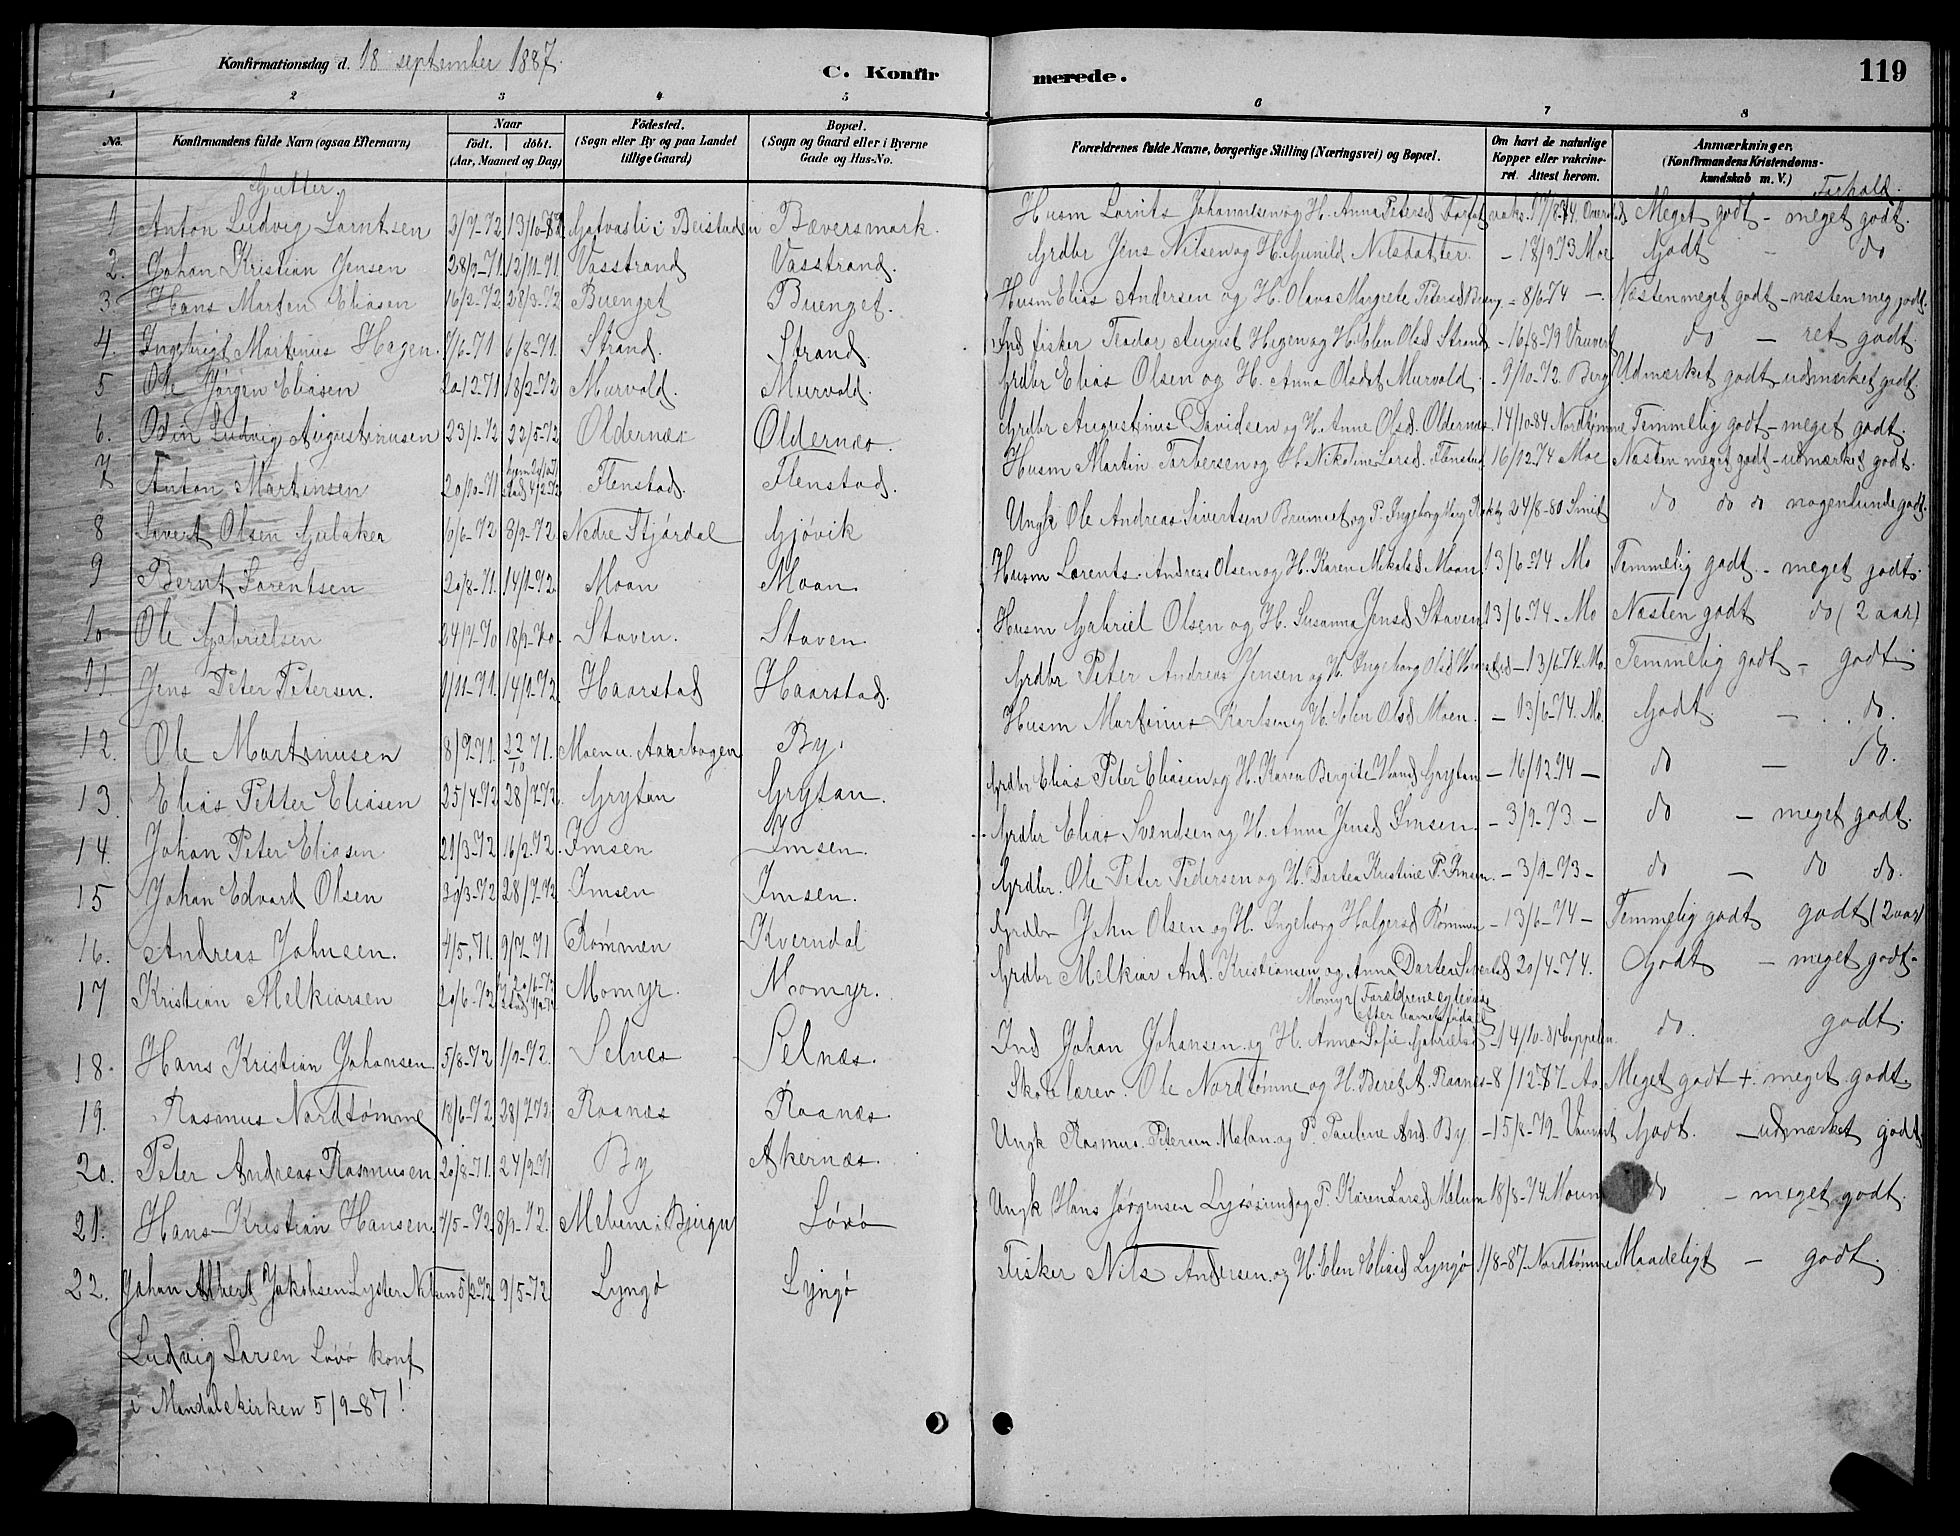 Konfirmationsdag d. 18 september 1887.
C. Konfirmerede.
119
1 2 3 4 5 6 7 8
No.
Konfirmandens fulde Navn (ogsaa Efternavn)
Naar
födt. döbt.
(Aar, Maaned og Dag)
Födested.
(Sogn eller By og paa Landet
tillige Gaard)
Bopæl.
(Sogn og Gaard eller i Byerne
Gade og Hus-No.
Forældrenes fulde Navne, borgerlige Stilling (Næringsvei) og Bopæl.
Om havt de naturlige
Kopper eller vakcine-
ret. Attest herom.
Anmærkninger.
(Konfirmandens Kristendoms-
kundskab m. V.)
Forhold.
Gutter.
1 Anton Ludvig Larntsen 3/7-72 13/10-72 i Beistaden Bæversmark. Husm Larnts Johannesen og H. Anna Petersd Meget godt - meget godt.
2. Johan Kristian Jensen 28/9-71 12/11-71 Vasstrand Vasstrand. Grdbr Jens Nilsen og H. Gunild Nilsdatter - 18/9 73 Moe Godt - do
3. Hans Morten Eliasen 16/2-72 28/3-72 Buenget Buenget. Husm Elias Andersen og H. Olava Margrete Petersd - 8/6 74 - Næsten meget godt - næsten meg godt.
4. Ingebrigt Martinus Hagen. 7/6-71 6/8-71. Strand. Strand. Ind fisker Teodor August Hegen og H. Elen Olsd Strand - 16/8-79 do - ret godt
5 Ole Jørgen Eliasen 20 12-71 18/2-72 Murvold. Murvold. Grdbr Elias Olsen og H. Anna Olsdt Murvold. - 9/10-72. Berg Udmærket godt - udmærket godt.
6. Odin Ludvig Augustinusen 23/1-72 22/5-72 Oldernæs Oldernæs. Grdbr Augustinus Davidsen og H. Anne Olsd. Oldernæs. 14/10-84 Nordtømme Temmelig godt - meget godt.
7 Anton Martinsen 20/10-71 stad. 4/2-72 Flenstad. Flenstad. Husm Martin Torbersen og H. Nikoline Larsd. Flenstad 16/12 74 Moe Næsten meget godt - udmærket godt.
8 Sivert Olsen Gulaker 6/6-72 8/9-72. Nedre Stjørdal Gjøvik Ungk Ole Andreas Sivertsen og P. Ingeborg 24/8-80 Smit do do do nogenlunde godt.
9 Bernt Larentsen 20/8-71. 14/1-72. Moan Moan. Husm Lorents Andreas Olsen og H. Karen Mikalsd Moan. 13/6-74 Mo Temmelig godt - meget godt.
10. Ole Gabrielsen 24/7-70 18/9-70. Staven. Staven. Husm Gabriel Olsen og H. Susanna Jensd Staven 13/6-74-Mo Næsten godt do (2 aar)
11. Jens Peter Petersen. 1/11-71. 14/1-72. Haarstad Haarstad. Grdbr Peter Andreas Jensen og H. Ingeborg Olsd - 13/6-74. Mo. Temmelig godt - godt
12. Ole Martinusen 8/9-71. 22/10 71. Moen u. Aarbogen By. Husm Martinus Karlsen og H. Elen Olsd Moen. - 13/6-74. Mo. Godt. - do.
13. Elias Petter Eliasen 25/4-72 28/7-72. Grytan Grytan. Grdbr Elias Peter Eliasen og H. Karen Bergite Grytan - 16/12 74 - do - do.
14. Johan Peter Eliasen. 21/3-72 Imsen Imsen. Grdbr Elias Svendsen og H. Anna Jensd Imsen. - 3/9-73 - do - meget godt.
15 Johan Edvard Olsen 30/3-72 28/7-72 Imsen Imsen. Grdbr. Ole Peter Pedersen og H. Dortea Kristine P. Imsen. - 3/9-73 - do - do do.
16. Andreas Johnsen. 4/5-71. 9/7-71 Rømmen Kverndal Grdbr John Olsen og H. Ingeborg Holgersd Rømmen - 13/6-74 - Temmelig godt godt (2 aar)
17 Kristian Melkiorsen 20/6-72 Momyr. Momyr. Grdbr Melkior And. Kristiansen og Anna Dortea Sivertsd 20/4-74. Godt - meget godt.
Momyr (Forældrene
efter barnets fødsel
18. Hans Kristian Johansen. 5/8-72 1/9-72. Selnæs Selnæs. Ind Johan Johansen og H. Anna Sofie Gabrielsd - 14/10-81 Coppelen. do. godt.
19. Rasmus Nordtømme 18/6-72 28/7 72. Raanæs Raanæs Skolelærer. Ole Nordtømme og H. Beret A. Raanæs - 8/12 87. Meget godt + meget godt.
20. Peter Andreas Rasmusen 20/8-71. 24/9-71 By Akernæs. Ungk Rasmus Petersen Melan og P. Pauline And. By - 15/8-79 Godt. - udmærket godt
21. Hans Kristian Hansen. 4/5-72. 8/9-72. Mebern i Bjugn Løvø Ungk Hans Jørgensen Lysøsund og P. Karen Larsd Melum 18/8-74. do - meget godt.
22. Johan Albert Jakobsen Lyster Nilsen 5/2-72 9/5-72 Lyngø Lyngø Fisker Nils Andersen og H. Elen Eliasd Lyngø 1/8-87. Nordtømme Maadeligt - godt.
Ludvig Soren Løvø konf
i Mandalskirken 5/9-87!